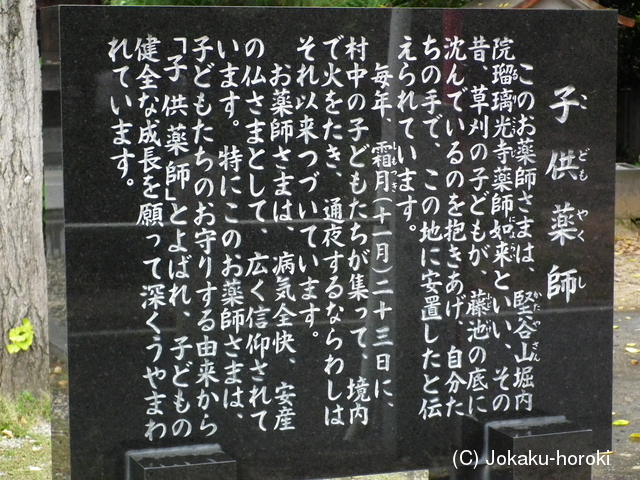 子供薬師
このお薬師さまは、堅谷山堀内
院瑠璃光寺薬師如来といい、その
昔、草刈の子どもが、藤池の底に
沈んでいるのを抱きあげ、自分た
ちの手で、この地に安置したと伝
えられています。
毎年、霜月(十一月)二十三日に、
村中の子どもたちが集って、境内
で火をたき、通夜するならわしは
それ以来つづいています。
お薬師さまは、病気全快、安産
の仏さまとして、広く信仰されて
います。特にこのお薬師さまは、
子どもたちのお守りする由来から
「子供薬師」とよばれ、子どもの
健全な成長を願って深くうやまわ
れています。
(C) Jokaku-horoki